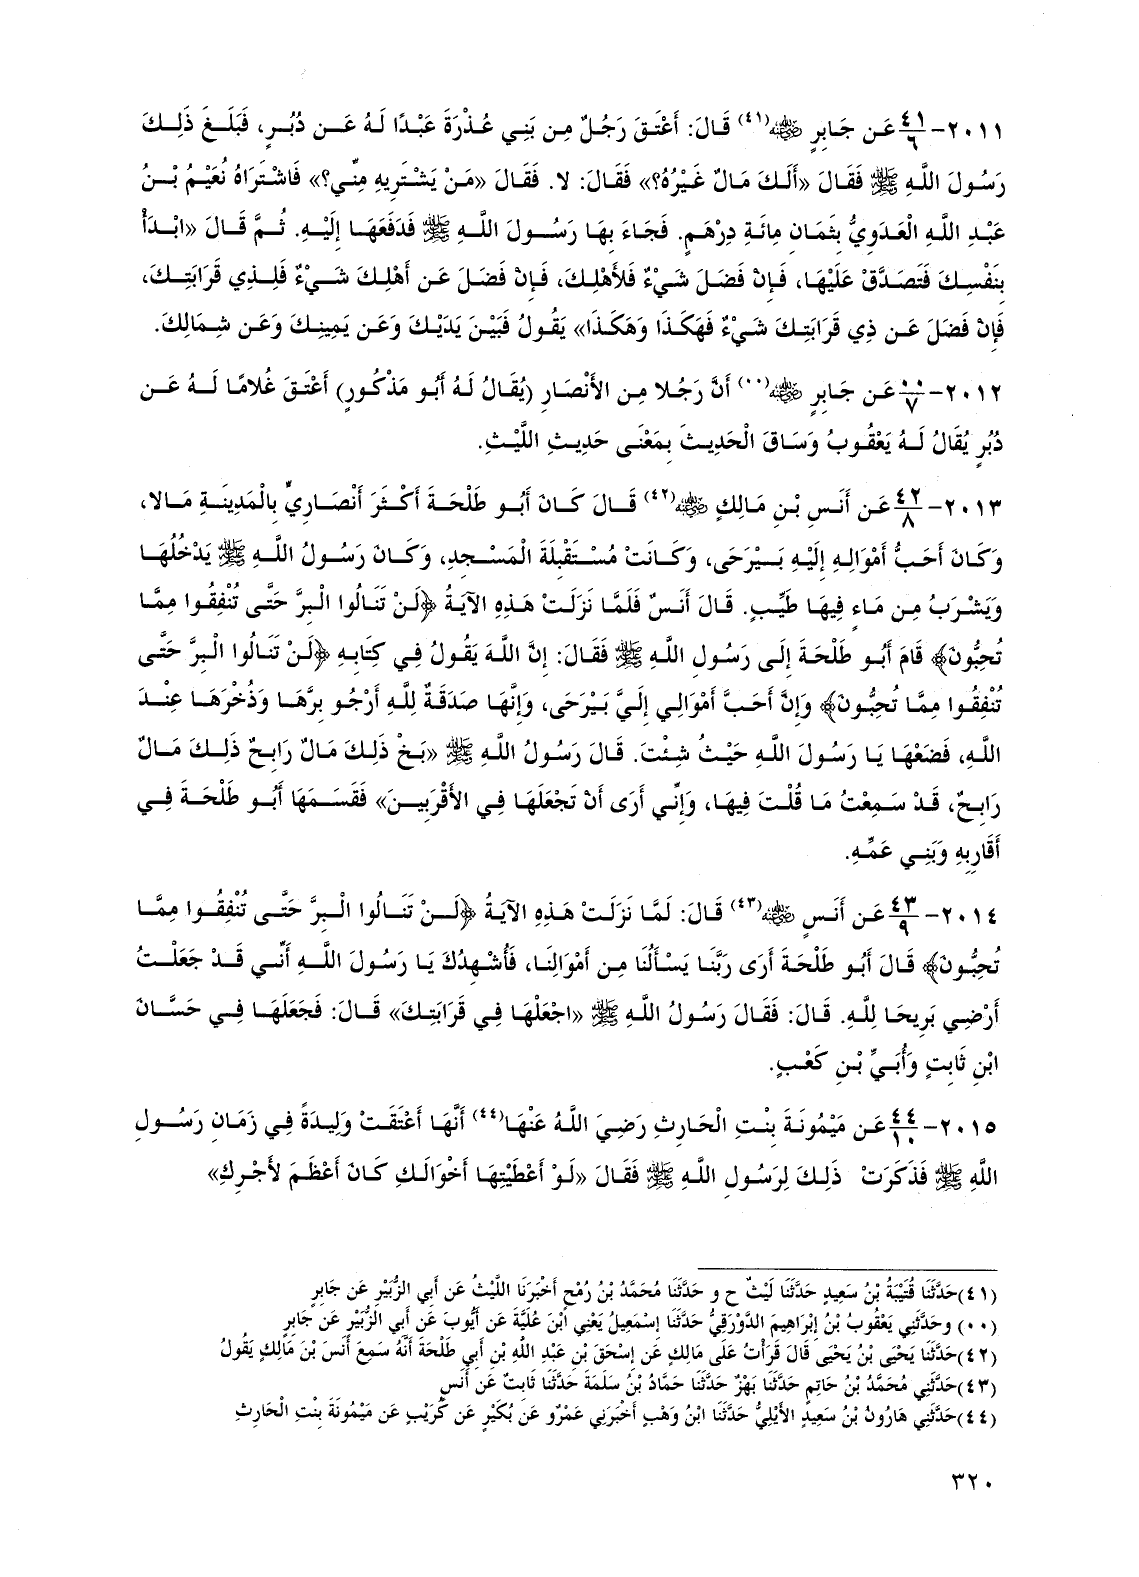 ٢٠١١- ٤١/٦ عَن جَابِرٍ ﷺ(٤١) قَالَ: أَعْتَقَ رَجُلٌ مِن بَنِي عُذْرَةَ عَبْدًا لَهُ عَن دُبُرٍ، فَبَلَغَ ذَلِكَ
رَسُولَ اللَّهِ ﷺ فَقَالَ «أَلَكَ مَالٌ غَيْرُهُ؟» فَقَالَ: لا. فَقَالَ «مَنْ يَشْتَرِيهِ مِنِّي؟» فَاشْتَرَاهُ نُعَيْمُ بْنُ
عَبْدِ اللَّهِ الْعَدَوِيُّ بِثَمَانِ مِائَةِ دِرْهَمٍ. فَجَاءَ بِهَا رَسُولَ اللَّهِ ﷺ فَدَفَعَهَا إِلَيْهِ. ثُمَّ قَالَ «ابْدَأْ
بِنَفْسِكَ فَتَصَدَّقْ عَلَيْهَا، فَإِنْ فَضَلَ شَيْءٌ فَلأَهْلِكَ، فَإِنْ فَضَلَ عَن أَهْلِكَ شَيْءٌ فَلِذِي قَرَابَتِكَ،
فَإِنْ فَضَلَ عَن ذِي قَرَابَتِكَ شَيْءٌ فَهَكَذَا وَهَكَذَا» يَقُولُ فَبَيْنَ يَدَيْكَ وَعَن يَمِينِكَ وَعَن شِمَالِكَ.
٢٠١٢- ٠٠/٧ عَن جَابِرٍ ﷺ(٠٠) أَنَّ رَجُلا مِن الأَنْصَارِ (يُقَالُ لَهُ أَبُو مَذْكُورٍ) أَعْتَقَ غُلامًا لَهُ عَن
دُبُرٍ يُقَالُ لَهُ يَعْقُوبُ وَسَاقَ الْحَدِيثَ بِمَعْنَى حَدِيثِ اللَّيْثِ.
٢٠١٣- ٤٢/٨ عَن أَنَسِ بْنِ مَالِكٍ ﷺ(٤٢) قَالَ كَانَ أَبُو طَلْحَةَ أَكْثَرَ أَنْصَارِيٍّ بِالْمَدِينَةِ مَالا،
وَكَانَ أَحَبُّ أَمْوَالِهِ إِلَيْهِ بَيْرَحَى، وَكَانَتْ مُسْتَقْبِلَةَ الْمَسْجِدِ، وَكَانَ رَسُولُ اللَّهِ ﷺ يَدْخُلُهَا
وَيَشْرَبُ مِن مَاءٍ فِيهَا طَيِّبٍ. قَالَ أَنَسٌ فَلَمَّا نَزَلَتْ هَذِهِ الآيَةُ ﴿لَنْ تَنَالُوا الْبِرَّ حَتَّى تُنْفِقُوا مِمَّا
تُحِبُّونَ﴾ قَامَ أَبُو طَلْحَةَ إِلَى رَسُولِ اللَّهِ ﷺ فَقَالَ: إِنَّ اللَّهَ يَقُولُ فِي كِتَابِهِ ﴿لَنْ تَنَالُوا الْبِرَّ حَتَّى
تُنْفِقُوا مِمَّا تُحِبُّونَ﴾ وَإِنَّ أَحَبَّ أَمْوَالِي إِلَيَّ بَيْرَحَى، وَإِنَّهَا صَدَقَةٌ لِلَّهِ أَرْجُو بِرَّهَا وَذُخْرَهَا عِنْدَ
اللَّهِ، فَضَعْهَا يَا رَسُولَ اللَّهِ حَيْثُ شِئْتَ. قَالَ رَسُولُ اللَّهِ ﷺ «بَخْ ذَلِكَ مَالٌ رَابِحٌ ذَلِكَ مَالٌ
رَابِحٌ، قَدْ سَمِعْتُ مَا قُلْتَ فِيهَا، وَإِنِّي أَرَى أَنْ تَجْعَلَهَا فِي الأَقْرَبِينَ» فَقَسَمَهَا أَبُو طَلْحَةَ فِي
أَقَارِبِهِ وَبَنِي عَمِّهِ.
٢٠١٤- ٤٣/٩ عَن أَنَسٍ ﷺ(٤٣) قَالَ: لَمَّا نَزَلَتْ هَذِهِ الآيَةُ ﴿لَنْ تَنَالُوا الْبِرَّ حَتَّى تُنْفِقُوا مِمَّا
تُحِبُّونَ﴾ قَالَ أَبُو طَلْحَةَ أَرَى رَبَّنَا يَسْأَلُنَا مِن أَمْوَالِنَا، فَأُشْهِدُكَ يَا رَسُولَ اللَّهِ أَنِّي قَدْ جَعَلْتُ
أَرْضِي بَرِيحَا لِلَّهِ. قَالَ: فَقَالَ رَسُولُ اللَّهِ ﷺ «اجْعَلْهَا فِي قَرَابَتِكَ» قَالَ: فَجَعَلَهَا فِي حَسَّانَ
ابْنِ ثَابِتٍ وَأُبَيِّ بْنِ كَعْبٍ.
٢٠١٥- ٤٤/١٠ عَن مَيْمُونَةَ بِنْتِ الْحَارِثِ رَضِيَ اللَّهُ عَنْهَا(٤٤) أَنَّهَا أَعْتَقَتْ وَلِيدَةً فِي زَمَانِ رَسُولِ
اللَّهِ ﷺ فَذَكَرَتْ ذَلِكَ لِرَسُولِ اللَّهِ ﷺ فَقَالَ «لَوْ أَعْطَيْتِهَا أَخْوَالَكِ كَانَ أَعْظَمَ لأَجْرِكِ»
(٤١)حَدَّثَنَا قُتَيْبَةُ بْنُ سَعِيدٍ حَدَّثَنَا لَيْثٌ ح و حَدَّثَنَا مُحَمَّدُ بْنُ رُمْحٍ أَخْبَرَنَا اللَّيْثُ عَن أَبِي الزُّبَيْرِ عَن جَابِرٍ
(٠٠) وحَدَّثَنِي يَعْقُوبُ بْنُ إِبْرَاهِيمَ الدَّوْرَقِيُّ حَدَّثَنَا إِسْمَعِيلُ يَعْنِي ابْنَ عُلَيَّةَ عَن أَيُّوبَ عَن أَبِي الزُّبَيْرِ عَن جَابِرٍ
(٤٢)حَدَّثَنَا يَحْيَى بْنُ يَحْيَى قَالَ قَرَأْتُ عَلَى مَالِكٍ عَن إِسْحَقَ بْنِ عَبْدِ اللَّهِ بْنِ أَبِي طَلْحَةَ أَنَّهُ سَمِعَ أَنَسَ بْنَ مَالِكٍ يَقُولُ
(٤٣)حَدَّثَنِي مُحَمَّدُ بْنُ حَاتِمٍ حَدَّثَنَا بَهْزٌ حَدَّثَنَا حَمَّادُ بْنُ سَلَمَةَ حَدَّثَنَا ثَابِتٌ عَن أَنَسٍ
(٤٤)حَدَّثَنِي هَارُونُ بْنُ سَعِيدٍ الأَيْلِيُّ حَدَّثَنَا ابْنُ وَهْبٍ أَخْبَرَنِي عَمْرٌو عَن بُكَيْرٍ عَن كُرَيْبٍ عَن مَيْمُونَةَ بِنْتِ الْحَارِثِ
٣٢٠